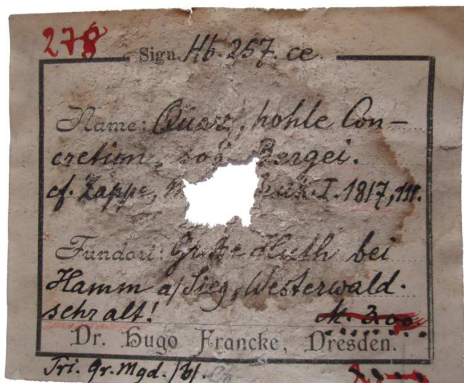 278
Sign. Hb. 257. ce.
Name: Quarz, hohle Con-
cretion, sog. Bergei.
cf. Zappe, I. 1817, 111.
Fundort: Grube Huth bei
Hamm a/Sieg, Westerwald.
sehr alt! M. 3.00
Dr. Hugo Francke, Dresden.
Tri. Gr. Mgd. /b/.